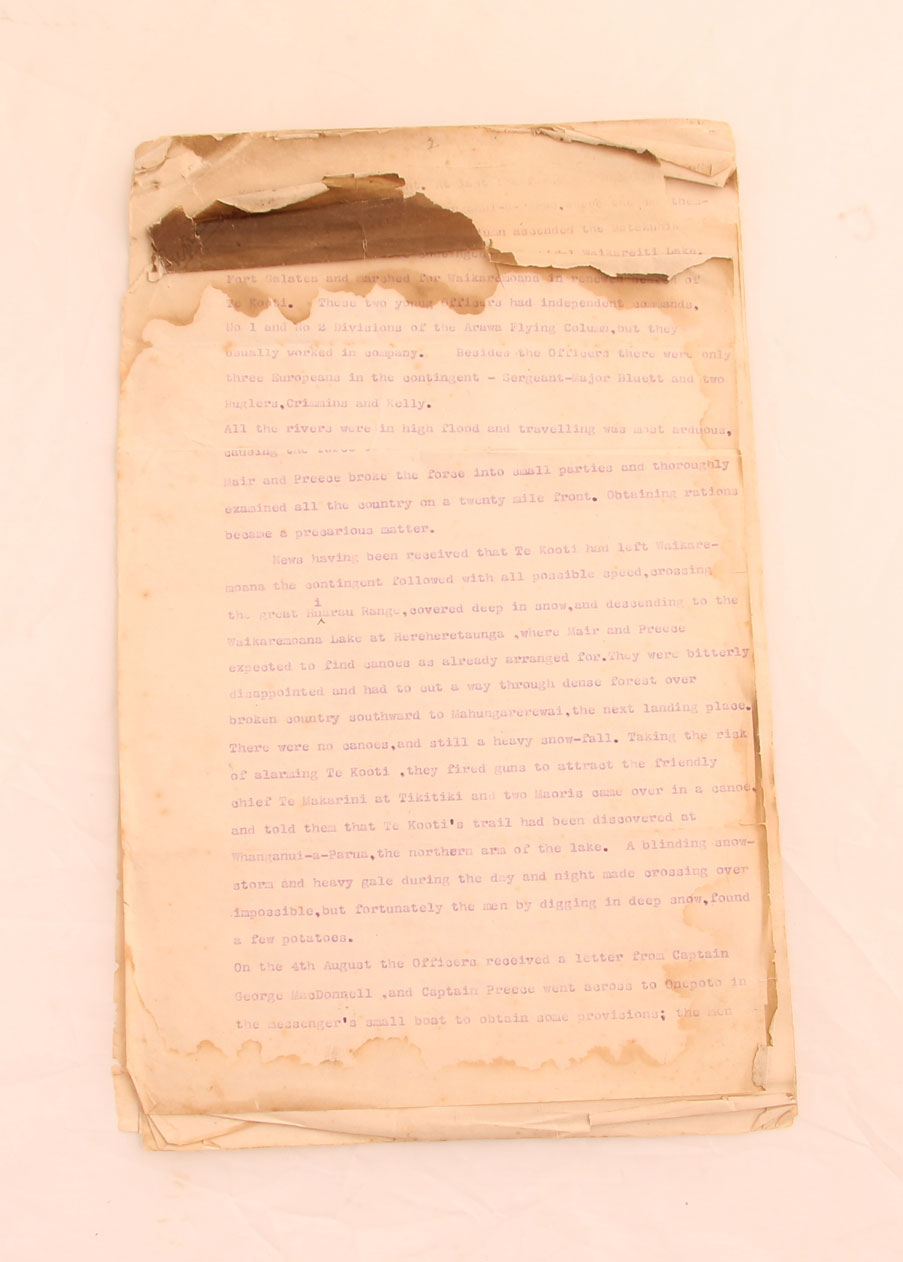 2
them-
ascended the
Waikareiti Lake.
Fort Galatea and marched for Waikaremoana in renewed search of
Te Kooti. These two young Officers had independent commands,
No 1 and No 2 Divisions of the Arawa Flying Column,but they
usually worked in company. Besides the Officers there were only
three Europeans in the contingent - Sergeant-Major Bluett and two
Buglers,Crimmins and Kelly.
All the rivers were in high flood and travelling was most arduous,
causing the force
Mair and Preece broke the force into small parties and thoroughly
examined all the country on a twenty mile front. Obtaining rations
became a precarious matter.
News having been received that Te Kooti had left Waikare-
moana the contingent followed with all possible speed,crossing
the great Huiarau Range,covered deep in snow,and descending to the
Waikaremoana Lake at Hereheretaunga ,where Mair and Preece
expected to find canoes as already arranged for.They were bitterly
disappointed and had to cut a way through dense forest over
broken country southward to Mahungarerewai,the next landing place.
There were no canoes,and still a heavy snow-fall. Taking the risk
of alarming Te Kooti ,they fired guns to attract the friendly
chief Te Makarini at Tikitiki and two Maoris came over in a canoe,
and told them that Te Kooti's trail had been discovered at
Whanganui-a-Parua,the northern arm of the lake. A blinding snow-
storm and heavy gale during the day and night made crossing over
impossible,but fortunately the men by digging in deep snow,found
a few potatoes.
On the 4th August the Officers received a letter from Captain
George MacDonnell ,and Captain Preece went across to Onepoto in
the messenger's small boat to obtain some provisions; the men